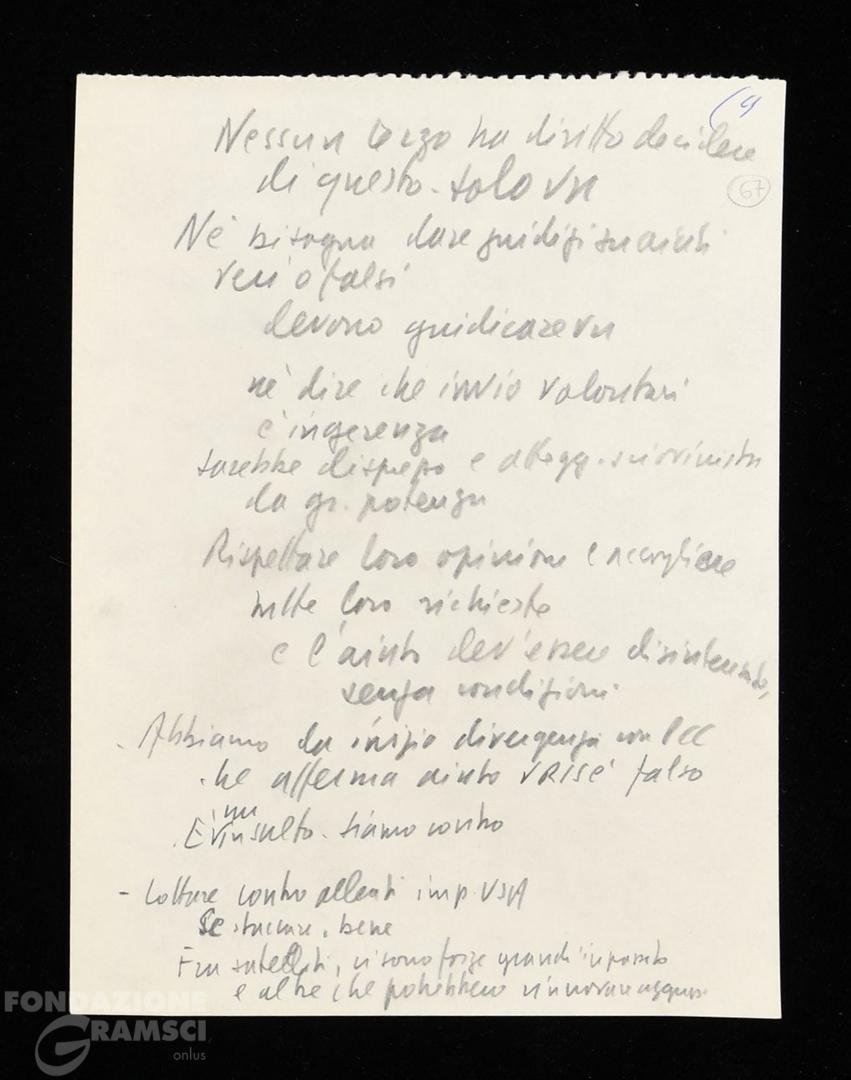 (9
67
Nessun terzo ha diritto decidere
di questo. solo VN
Nè bisogna dare giudizi su aiuti
veri o falsi
devono giudicare VN
nè dire che invio volontari
è ingerenza
sarebbe disprezzo e attegg. sciovinista
da gr. potenza
Rispettare loro opinione e accogliere
tutte loro richieste
e l'aiuto dev'essere disinteressato,
senza condizioni
. Abbiamo da inizio divergenza con PCC
che afferma aiuto URSS è falso
È un insulto. siamo contro
- Lottare contro alleati imp. USA
Se staccare, bene
Fra satelliti, vi sono forze grandi in passato
e altre che potrebbero rinnovare
FONDAZIONE
GRAMSCI
onlus